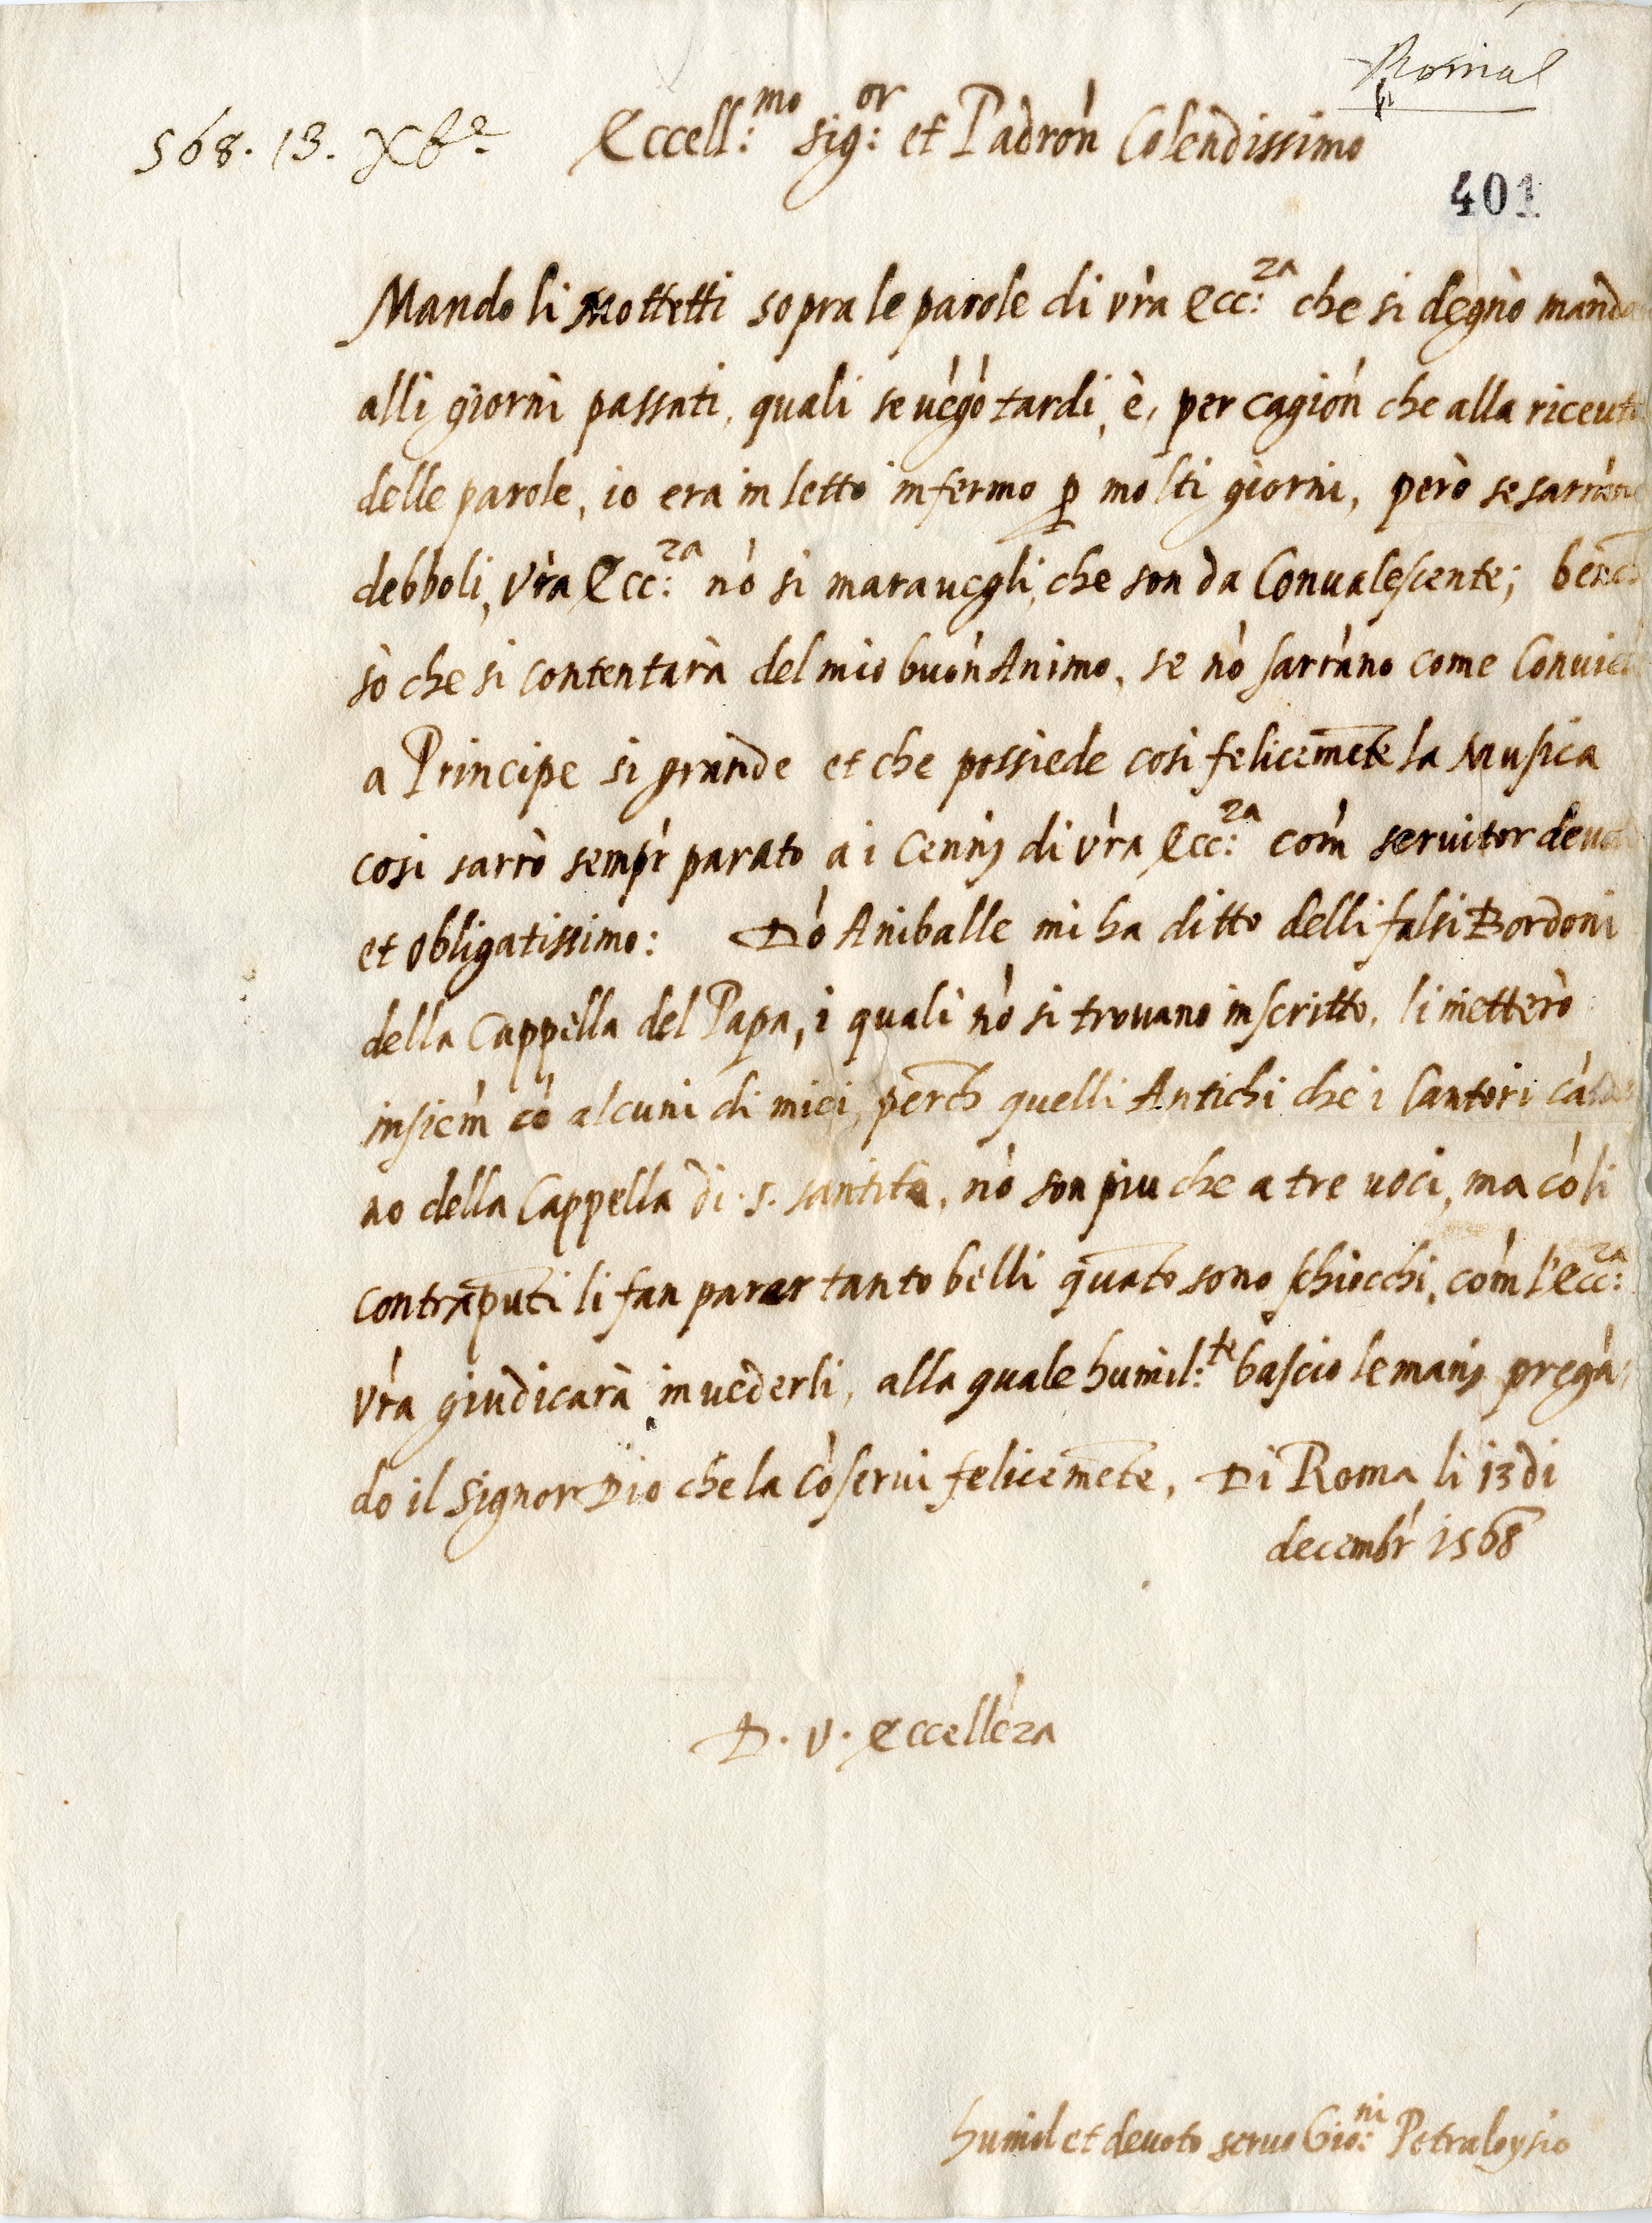 Roma
568. 13. Xb.e
Eccell:mo sig:or et Padron̄ Colendissimo
401
Mando li Mottetti sopra le parole di vr̄a Ecc:za che si degnò manda
alli giorni passati, quali se vēgō tardi, è, per cagion̄ che alla riceuta
delle parole, io era in letto infermo p̱ molti giorni, però se sarrāno
debboli, vr̄a Ecc:za nō si marauegli, che son da Conualescente; bench
sò che si contentarà del mio buon̄ Animo, se nō sarrāno come Conuien
a Principe si grande et che possiede cosi felicemēte la Musica
cosi sarrò sempr̄ parato a i Cennj di vr̄a Ecc:za com̄ seruitor deuoto
et obligatissimo: Dō Aniballe mi ha ditto delli falsi Bordoni
della Cappella del Papa, i quali nō si trouano in scritto, li metterò
insiem̄ cō alcuni di miei, perch quelli Antichi che i Cantori cā
no della Cappella di .s. santità, nō son piu che a tre uoci, ma cō li
contrapūti li fan parer tanto belli quāto sono schiocchi, com̄ l'Ecc:za
vr̄a giudicarà in uederli, alla quale humil:te bascio le manj pregā,
do il Signor Dio che la cōserui felicemēte, Di Roma li 13 di
decembr̄ 1568
D. V. Eccellēza
humil et deuoto seruo Gio:ni Petraloysio